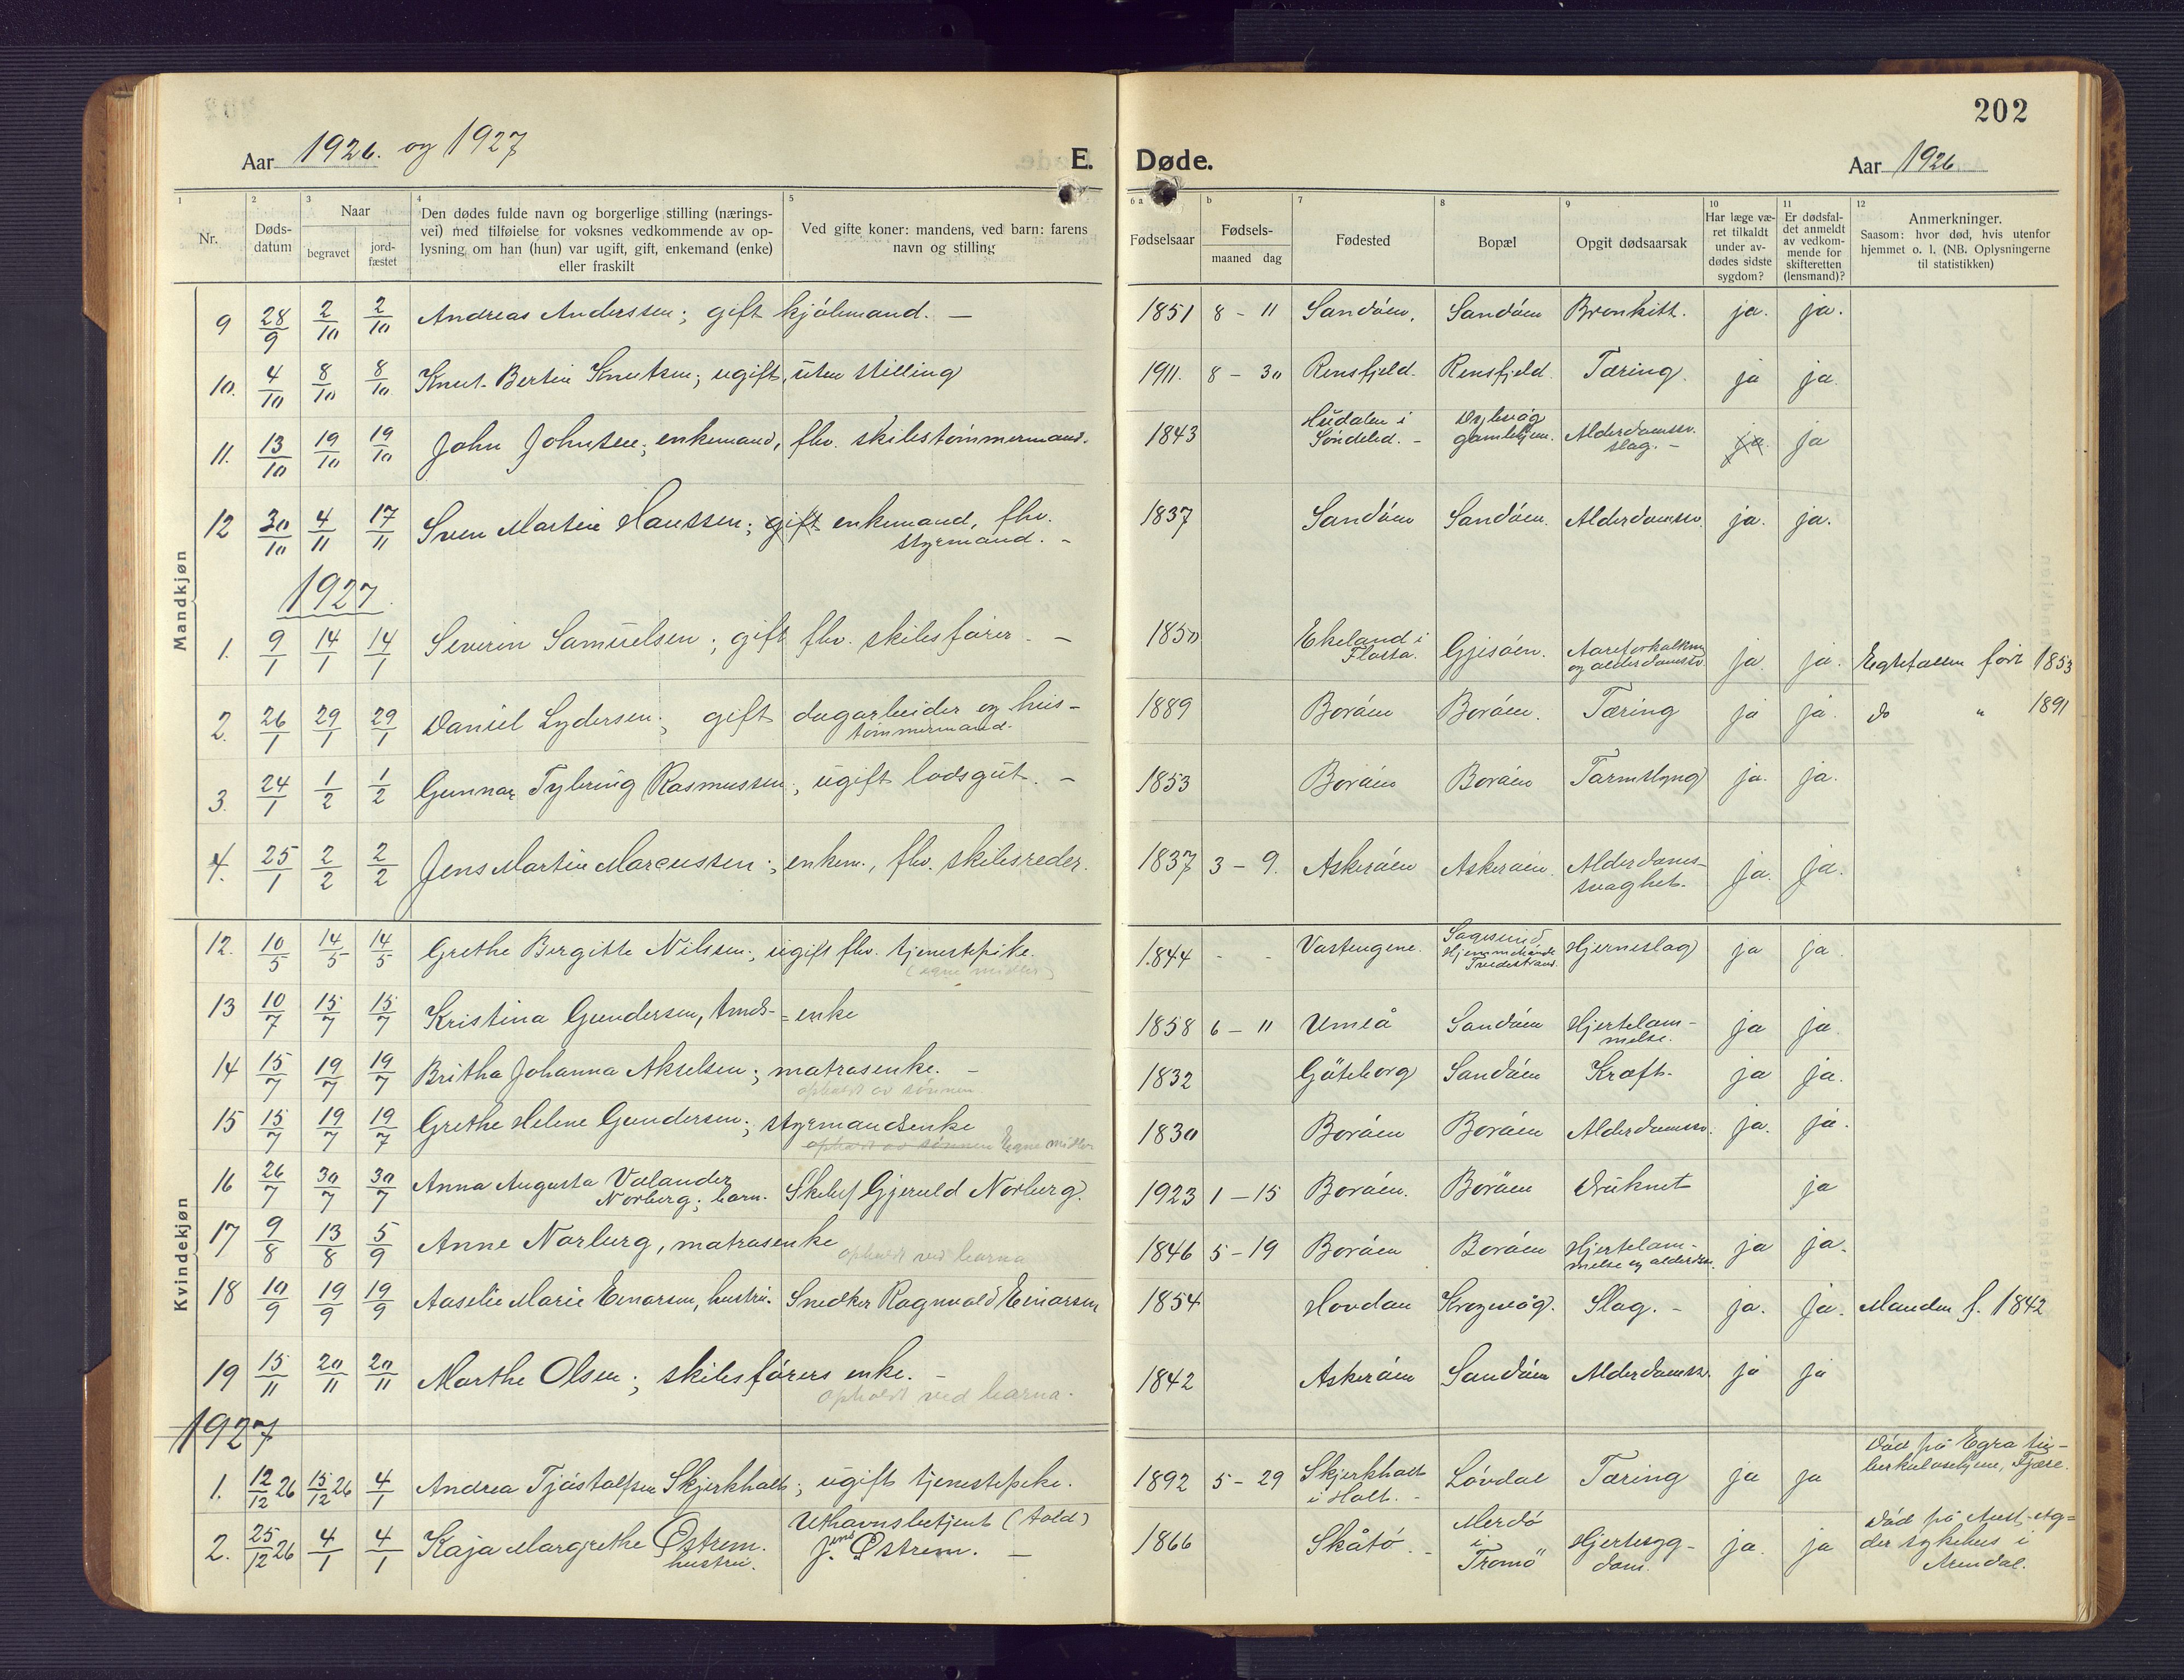 202
Aar 1926. og 1927 E. Døde. Aar 1926
1 2 3 4 5 6 a b 7 8 9 10 11 12
Nr.
Døds-
datum
Naar
begravet
jord-
fæstet
Den dødes fulde navn og borgerlige stilling (nærings-
vei) med tilføielse for voksnes vedkommende av op-
lysning om han (hun) var ugift, gift, enkemand (enke)
eller fraskilt
Ved gifte koner: mandens, ved barn: farens
navn og stilling
Fødselsaar
Fødsels-
maaned dag
Fødested
Bopæl
Opgit dødsaarsak
Har læge væ-
ret tilkaldt
under av-
dødes sidste
sygdom?
Er dødsfal-
det anmeldt
av vedkom-
mende for
skifteretten
(lensmand)?
Anmerkninger.
Saasom: hvor død, hvis utenfor
hjemmet o. l. (NB. Oplysningerne
til statistikken)
Mandkjøn
9 28/9 2/10 2/10 Andreas Anderssen; gift kjøbmand. — 1851 8 - 11 Sandøen. Sandøen Bronkitt. ja. ja.
10. 4/10 8/10 8/10 Knut Bertin Knutsen; ugift, uten stilling 1911. 8 - 30 Rensfjeld. Rensfjeld. Tæring. ja ja.
11. 13/10 19/10 19/10 John Johnsen; enkemand, fhv. skibstømmermand. 1843 Hudalen i
Søndeled. - Dybvåg
gamlehjem. Alderdomssv.
slag. - ja. ja
12 30/10 4/11 17/11 Sven Martin Hanssen; gift enkemand, fhv.
styrmand. - 1837 Sandøen Sandøen. Alderdomssv. ja. ja.
1927.
1. 9/1 14/1 14/1 Severin Samuelsen; gift fhv. skibsfører. - 1850 Ekeland i
Flosta. Gjesøen. Aareforkalkn.
og alderdomssv. ja. ja. Egtefællen født 1853
2. 26/1 29/1 29/1 Daniel Lydersen; gift dagarbeider og hus-
tømmermand. 1889 Borøen Borøen. Tæring ja ja. do " 1891
3. 24/1 1/2 1/2 Gunnar Tybring Rasmussen; ugift losgut. - 1853 Borøen Borøen Tarmslyng ja. ja.
4. 25/1 2/2 2/2 Jens Martin Marcussen; enkem., fhv. skibsreder. 1837 3 - 9. Askerøen Askerøen. Alderdoms-
svaghet. ja. ja.
Kvindekjøn
12. 10/5 14/5 14/5 Grethe Birgitte Nilssen; ugift fhv. tjenestepike.
(egne midler) 1844 - - Vastengene. Sagesund
Tvedestrand. Hjerneslag ja ja.
13 10/7 15/7 15/7 Kristina Gundersen, - enke 1858 6 - 11 Umeå Sandøen Hjertelam-
melse. ja ja.
14 15/7 19/7 19/7 Britha Johanna Akselsen; matrosenke. -
opholdt av sønnen 1832 Göteborg Sandøen Kræft. ja ja.
15 15/7 19/7 19/7 Grethe Helene Gundersen; styrmandsenke
opholdt av sønnen Egne midler 1830 Borøen Borøen Alderdomssv. ja. ja.
16 26/7 30/7 30/7 Anna Augusta Valander
Norberg; barn. Skibsf Gjeruld Norberg. 1923 1 - 15 Borøen. Borøen Druknet ja
17 9/8 13/8 5/9 Anne Norberg, matrosenke
opholdt ved barna 1846 5 - 19 Borøen Borøen Hjertelam-
melse og alderdom. ja ja.
18 10/9 19/9 19/9 Aaselie Marie Einarsen, hustru. Snedker Ragnvald Einarsen 1854 Hovdan Krogevåg. Slag. - ja. ja. Manden f. 1842
19 15/11 20/11 20/11 Marthe Olsen; skibsførers enke. -
opholdt ved barna. 1842 Askerøen Sandøen Alderdomssv. ja ja
1927
1. 12/12 26 15/12 26 4/1 Andrea Tjøstolfsen Skjerkholt; ugift tjenestepike. 1892 5 - 29 Skjerkholt
i Holt. - Løvdal Tæring ja ja Død på Egra tu-
berkulosehjem, Fjære.
2. 25/12 26 4/1 4/1 Kaja Margrethe Østrem.
hustru. Uthavnsbetjent (told)
Jens Østrem. — 1866 Skåtø. - Merdø
i
Tromø Hjertesyg-
dom. ja. ja Død på Aust-Ag-
der sykehus i
Arendal.